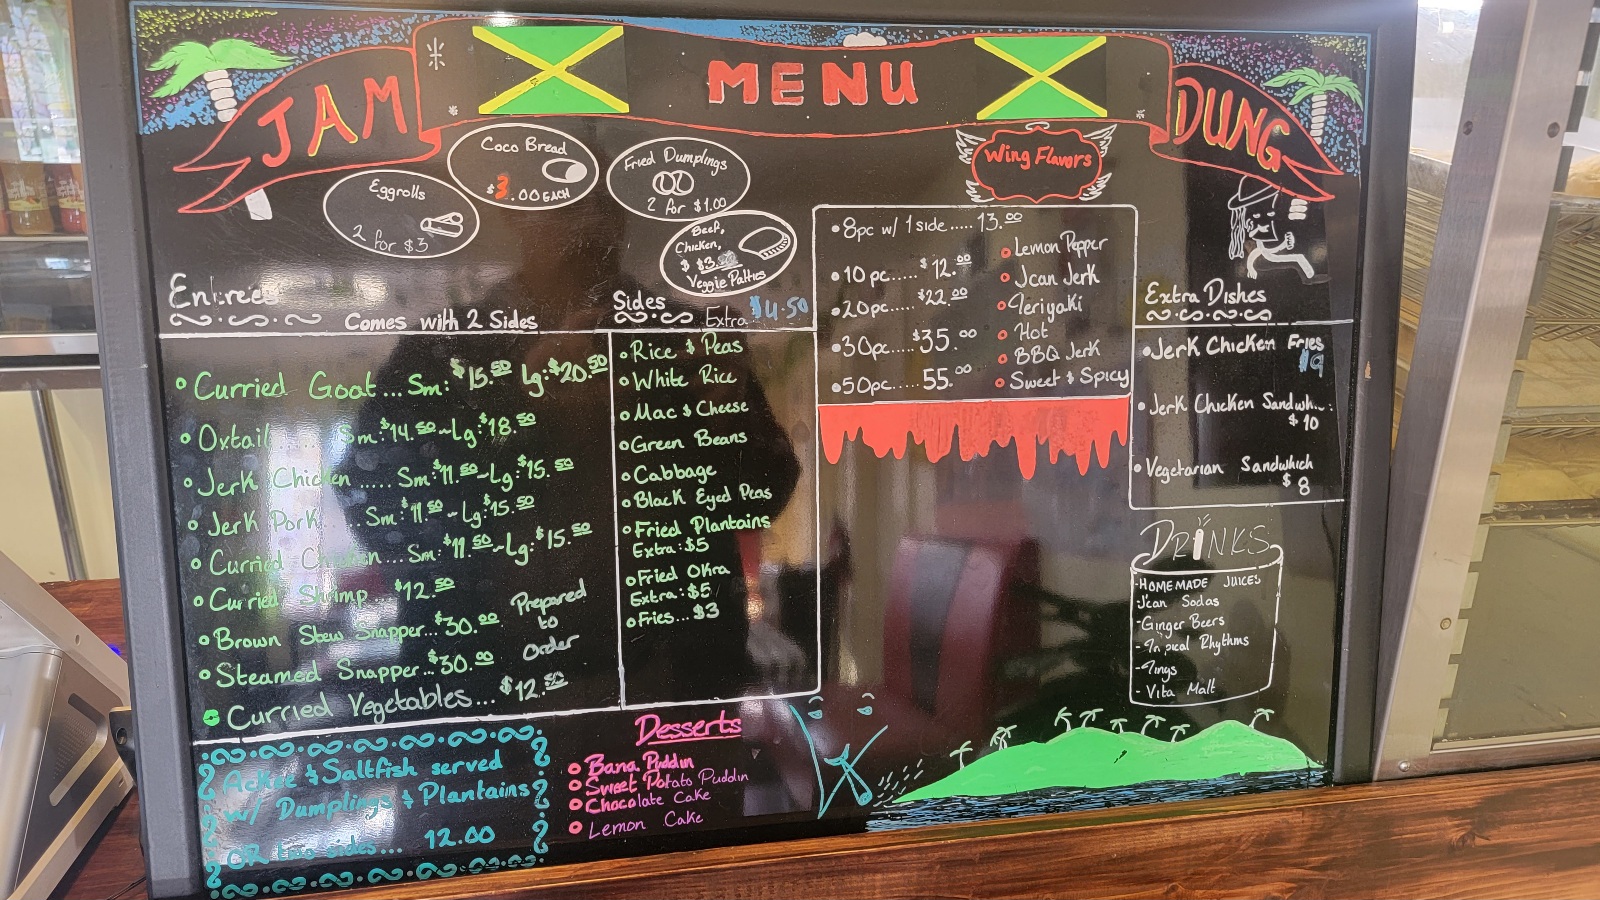 JAM MENU DUNG
Coco Bread
$3.00 EACH
Eggrolls
2 for $3
Fried Dumplings
2 for $1.00
Beef,
Chicken,
$ $3.
Veggie Patties
Wing Flavors
Entrees
Comes with 2 Sides
Curried Goat... Sm: $15.50 Lg: $20.50
Oxtail.... Sm: $14.50~Lg: $18.50
Jerk Chicken ..... Sm: $11.50~Lg: $15.50
Jerk Pork.... Sm: $11.50~Lg: $15.50
Curried Chicken... Sm: $11.50~Lg: $15.50
Curried Shrimp $12.50
Brown Stew Snapper...$30.00
Steamed Snapper...$30.00
Prepared
to
order
Curried Vegetables... $12.50
Sides
Extra $4.50
Rice & Peas
White Rice
Mac & Cheese
Green Beans
Cabbage
Black Eyed Peas
Fried Plantains
Extra: $5
Fried Okra
Extra: $5
Fries... $3
8pc w/ 1 side..... 13.00
10 pc..... $12.00
20pc..... $22.00
30pc..... $35.00
50pc..... 55.00
Lemon Pepper
Jcan Jerk
Teriyaki
Hot
BBQ Jerk
Sweet & Spicy
Extra Dishes
Jerk Chicken Fries
$9
Jerk Chicken Sandwh...:
$10
Vegetarian Sandwhich
$8
DRINKS
-HOMEMADE JUICES
-Jcan Sodas
-Ginger Beers
-Tropical Rhythms
-Tings
- Vita Malt
Ackee & Saltfish served
w/ Dumplings & Plantains
OR two sides... 12.00
Desserts
Bana Puddin
Sweet Potato Puddin
Chocolate Cake
Lemon Cake